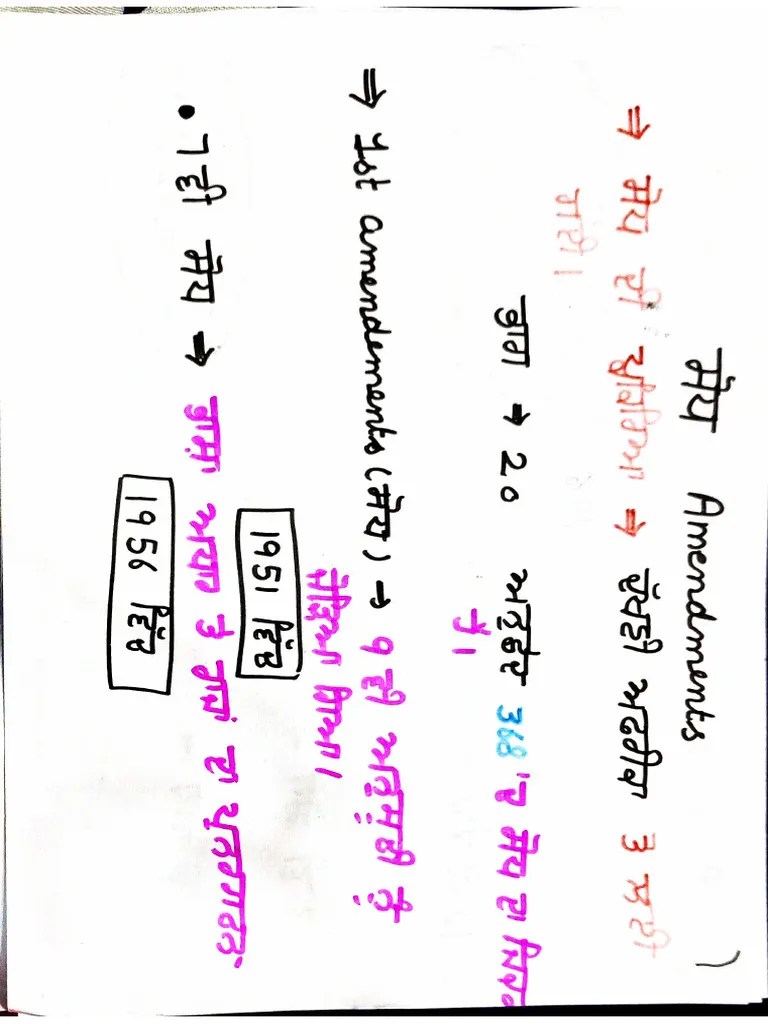 ਸੋਧ Amendments
⇒ ਸੋਧ ਦੀ ਪ੍ਰਕਿਰਿਆ → ਦੱਖਣੀ ਅਫਰੀਕਾ ਤੋਂ ਲਈ
ਗਈ।
ਭਾਗ → 20 ਅਨੁਛੇਦ 368 'ਚ ਸੋਧ ਦਾ ਜਿਕਰ
ਹੈ।
⇒ 1st amendements (ਸੋਧ) → 9 ਵੀ ਅਨੁਸੂਚੀ ਨੂੰ
ਜੋੜਿਆ ਗਿਆ।
1951 ਵਿੱਚ
• 7ਵੀ ਸੋਧ → ਭਾਸ਼ਾ ਅਧਾਰ ਤੇ ਰਾਜਾਂ ਦਾ ਪੁਨਰਗਠਨ
1956 ਵਿੱਚ